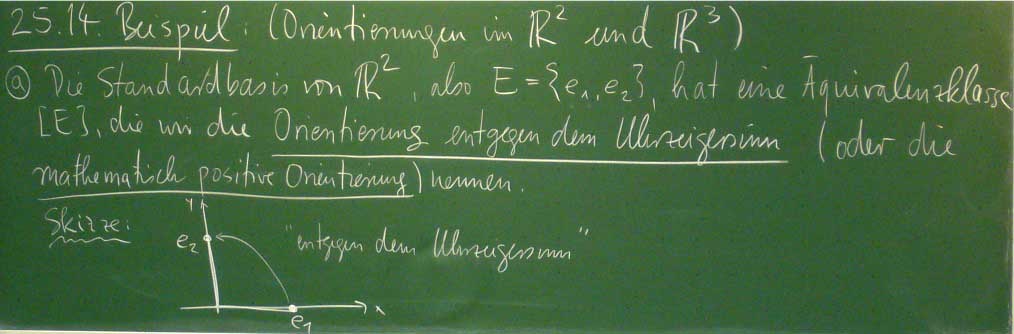 25.14. Beispiel: (Orientierungen im ℝ² und ℝ³)
ⓐ Die Standardbasis von ℝ², also E = {e₁, e₂}, hat eine Äquivalenzklasse
[E], die wir die Orientierung entgegen dem Uhrzeigersinn (oder die
mathematisch positive Orientierung) nennen.
Skizze:
y
e₂
"entgegen dem Uhrzeigersinn"
x
e₁